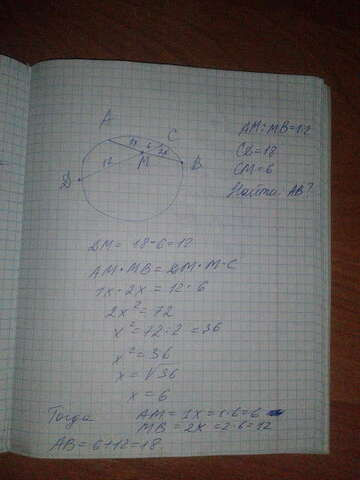 A
C
1x 6 2x
AM:MB=1:2
CD=18
CM=6
Найти: AB?
12
M
B
D
DM = 18-6=12
AM·MB=DM·M·C
1x·2x = 12·6
2x²=72
x²=72:2=36
x²=36
x=√36
x=6
Тогда AM=1x=1·6=6
MB=2x=2·6=12
AB=6+12=18